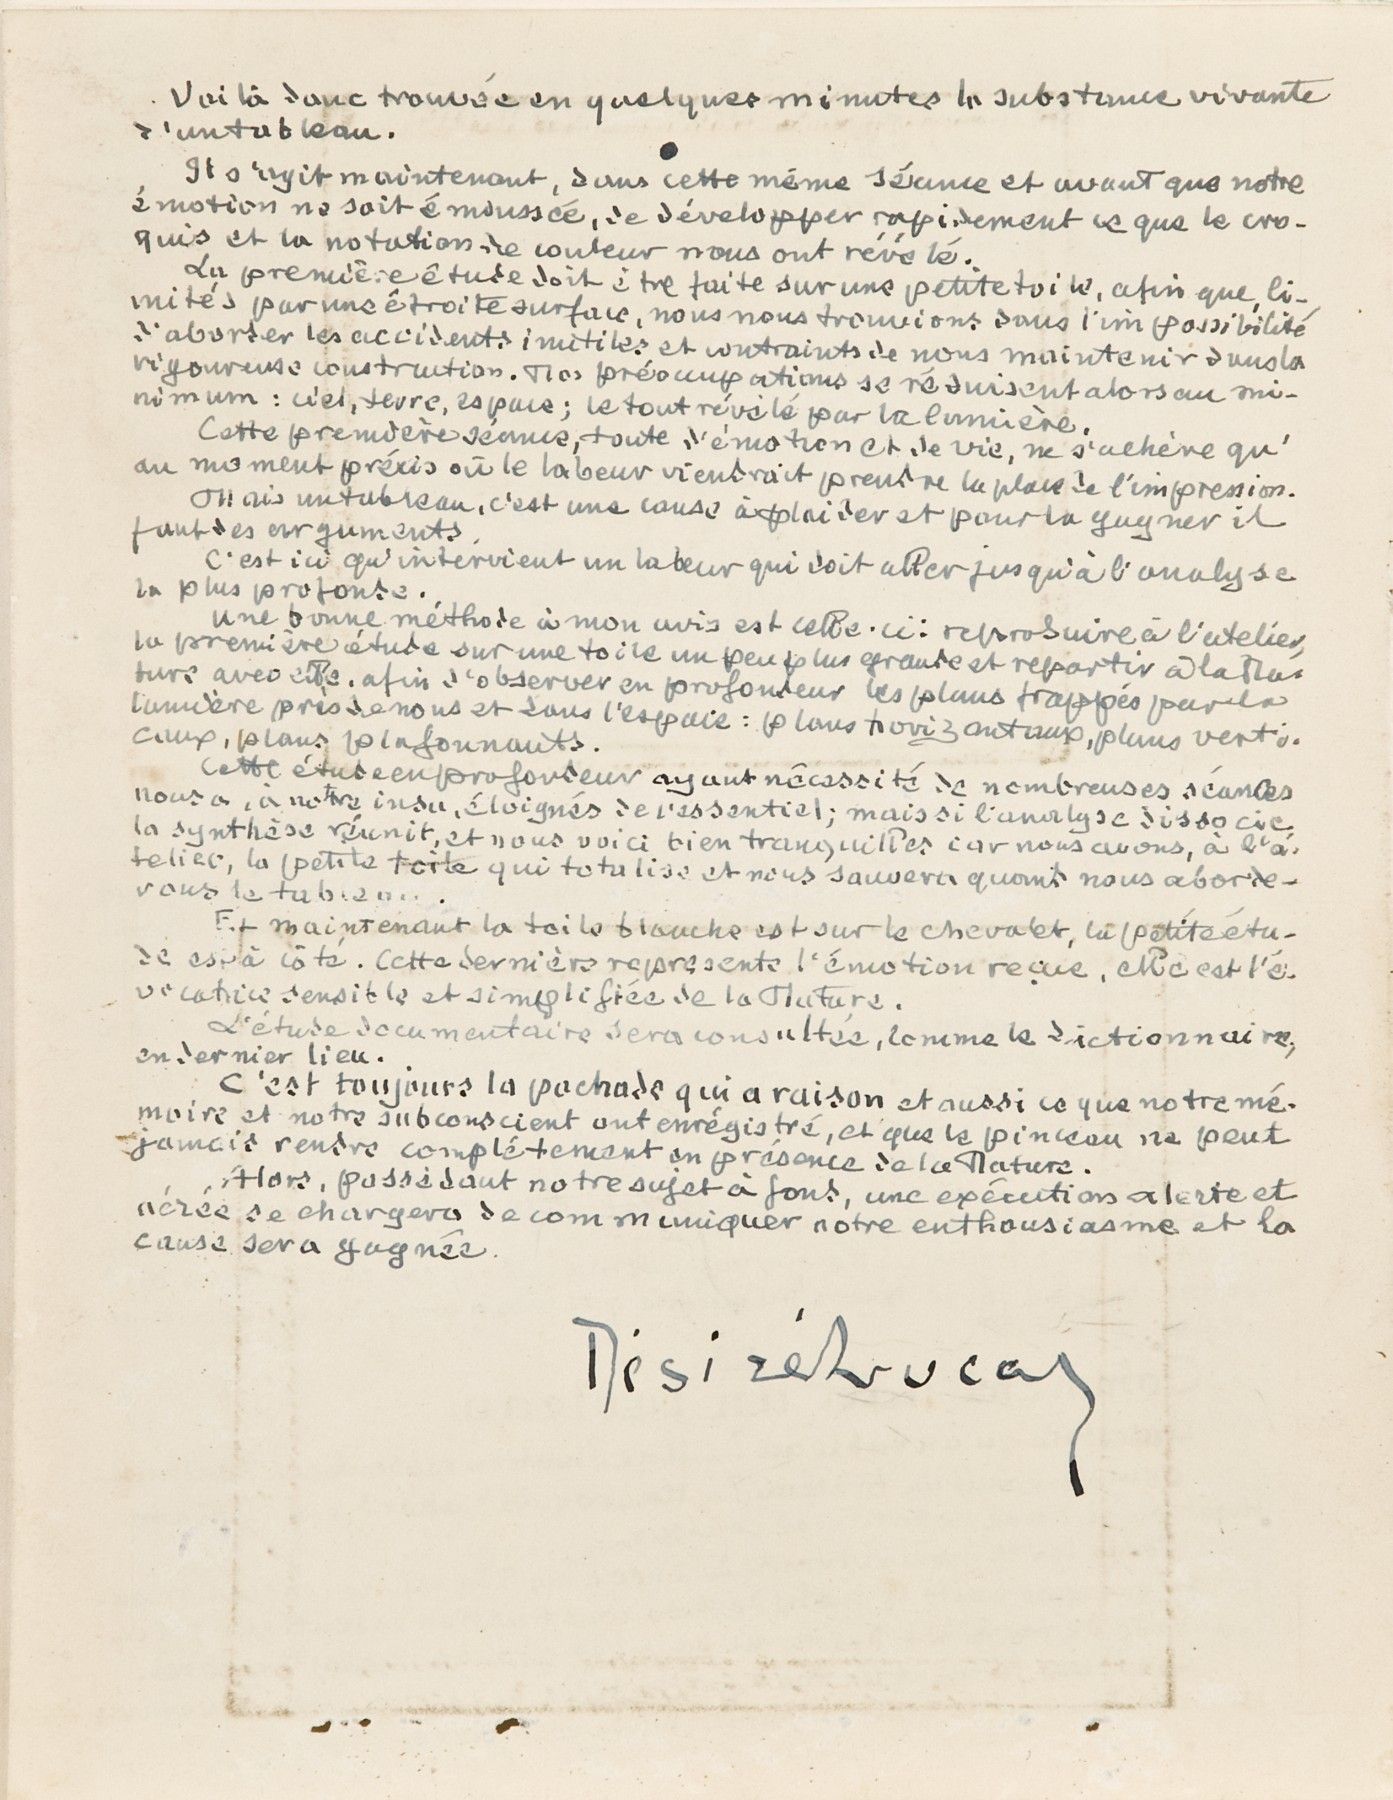 Voilà donc trouvée en quelques minutes la substance vivante
d'un tableau.
Il s'agit maintenant, dans cette même séance et avant que notre
émotion ne soit émoussée, de développer rapidement ce que le cro-
quis et la notation de couleur nous ont révélé.
La première étude doit être faite sur une petite toile, afin que, li-
mités par une étroite surface, nous nous trouvions dans l'impossibilité
d'aborder les accidents inutiles et contraints de nous maintenir dans la
rigoureuse construction. Nos préoccupations se réduisent alors au mi-
nimum : ciel, terre, espace ; le tout révélé par la lumière.
Cette première séance, toute d'émotion et de vie, ne s'achève qu'
au moment précis où le labeur viendrait prendre la place de l'impression.
Mais un tableau, c'est une cause à plaider et pour la gagner il
faut des arguments.
C'est ici qu'intervient un labeur qui doit aller jusqu'à l'analyse
la plus profonde.
Une bonne méthode à mon avis est celle-ci : reproduire à l'atelier,
la première étude sur une toile un peu plus grande et repartir à la Na-
ture avec elle, afin d'observer en profondeur les plans frappés par la
lumière près de nous et dans l'espace : plans horizontaux, plans verti-
caux, plans plafonnants.
Cette étude en profondeur ayant nécessité de nombreuses séances
nous a, à notre insu, éloignés de l'essentiel ; mais si l'analyse dissocie,
la synthèse réunit, et nous voici bien tranquilles car nous avons, à l'a-
telier, la petite toile qui totalise et nous sauvera quand nous aborde-
rons le tableau.
Et maintenant la toile blanche est sur le chevalet, la petite étu-
de est à côté. Cette dernière représente l'émotion reçue, elle est l'é-
vocatrice sensible et simplifiée de la Nature.
L'étude documentaire sera consultée, comme le dictionnaire,
en dernier lieu.
C'est toujours la pochade qui a raison et aussi ce que notre mé-
moire et notre subconscient ont enrégistré, et que le pinceau ne peut
jamais rendre complétement en présence de la Nature.
Alors, possédant notre sujet à fond, une exécution alerte et
aérée se chargera de communiquer notre enthousiasme et la
cause sera gagnée.
Désiré Lucas